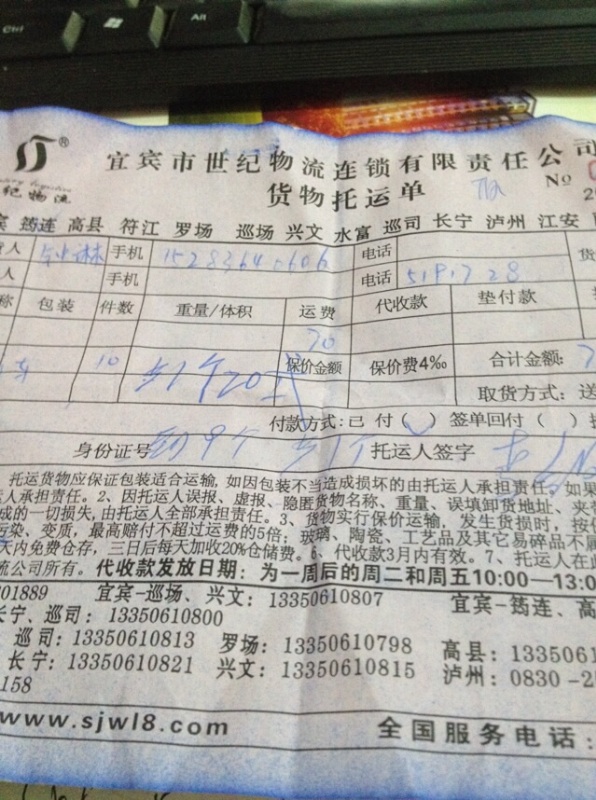 Ctrl Alt
®
宜宾市世纪物流连锁有限责任公司
纪物流 货物托运单 No 0
宾 筠连 高县 符江 罗场 巡场 兴文 水富 巡司 长宁 泸州 江安
货人 手机 电话 货
人 手机 电话 5191728
称 包装 件数 重量/体积 运费 代收款 垫付款
70
车 10 保价金额 保价费4‰ 合计金额: 7
取货方式: 送
付款方式: 已 付( ) 签单回付( )
身份证号 托运人签字
托运货物应保证包装适合运输, 如因包装不当造成损坏的由托运人承担责任。如果
运人承担责任。2、因托运人误报、虚报、隐匿货物名称、重量、误填卸货地址、夹带
成的一切损失, 由托运人全部承担责任。3、货物实行保价运输, 发生货损时, 按保
污染、变质, 最高赔付不超过运费的5倍; 玻璃、陶瓷、工艺品及其它易碎品不属
天内免费仓存, 三日后每天加收20%仓储费。6、代收款3月内有效。7、托运人在此
流公司所有。代收款发放日期: 为一周后的周二和周五10:00—13:0
01889 宜宾-巡场、兴文: 13350610807 宜宾-筠连、高
长宁、巡司: 13350610800
巡司: 13350610813 罗场: 13350610798 高县: 1335061
长宁: 13350610821 兴文: 13350610815 泸州: 0830-2
158
www.sjwl8.com 全国服务电话: